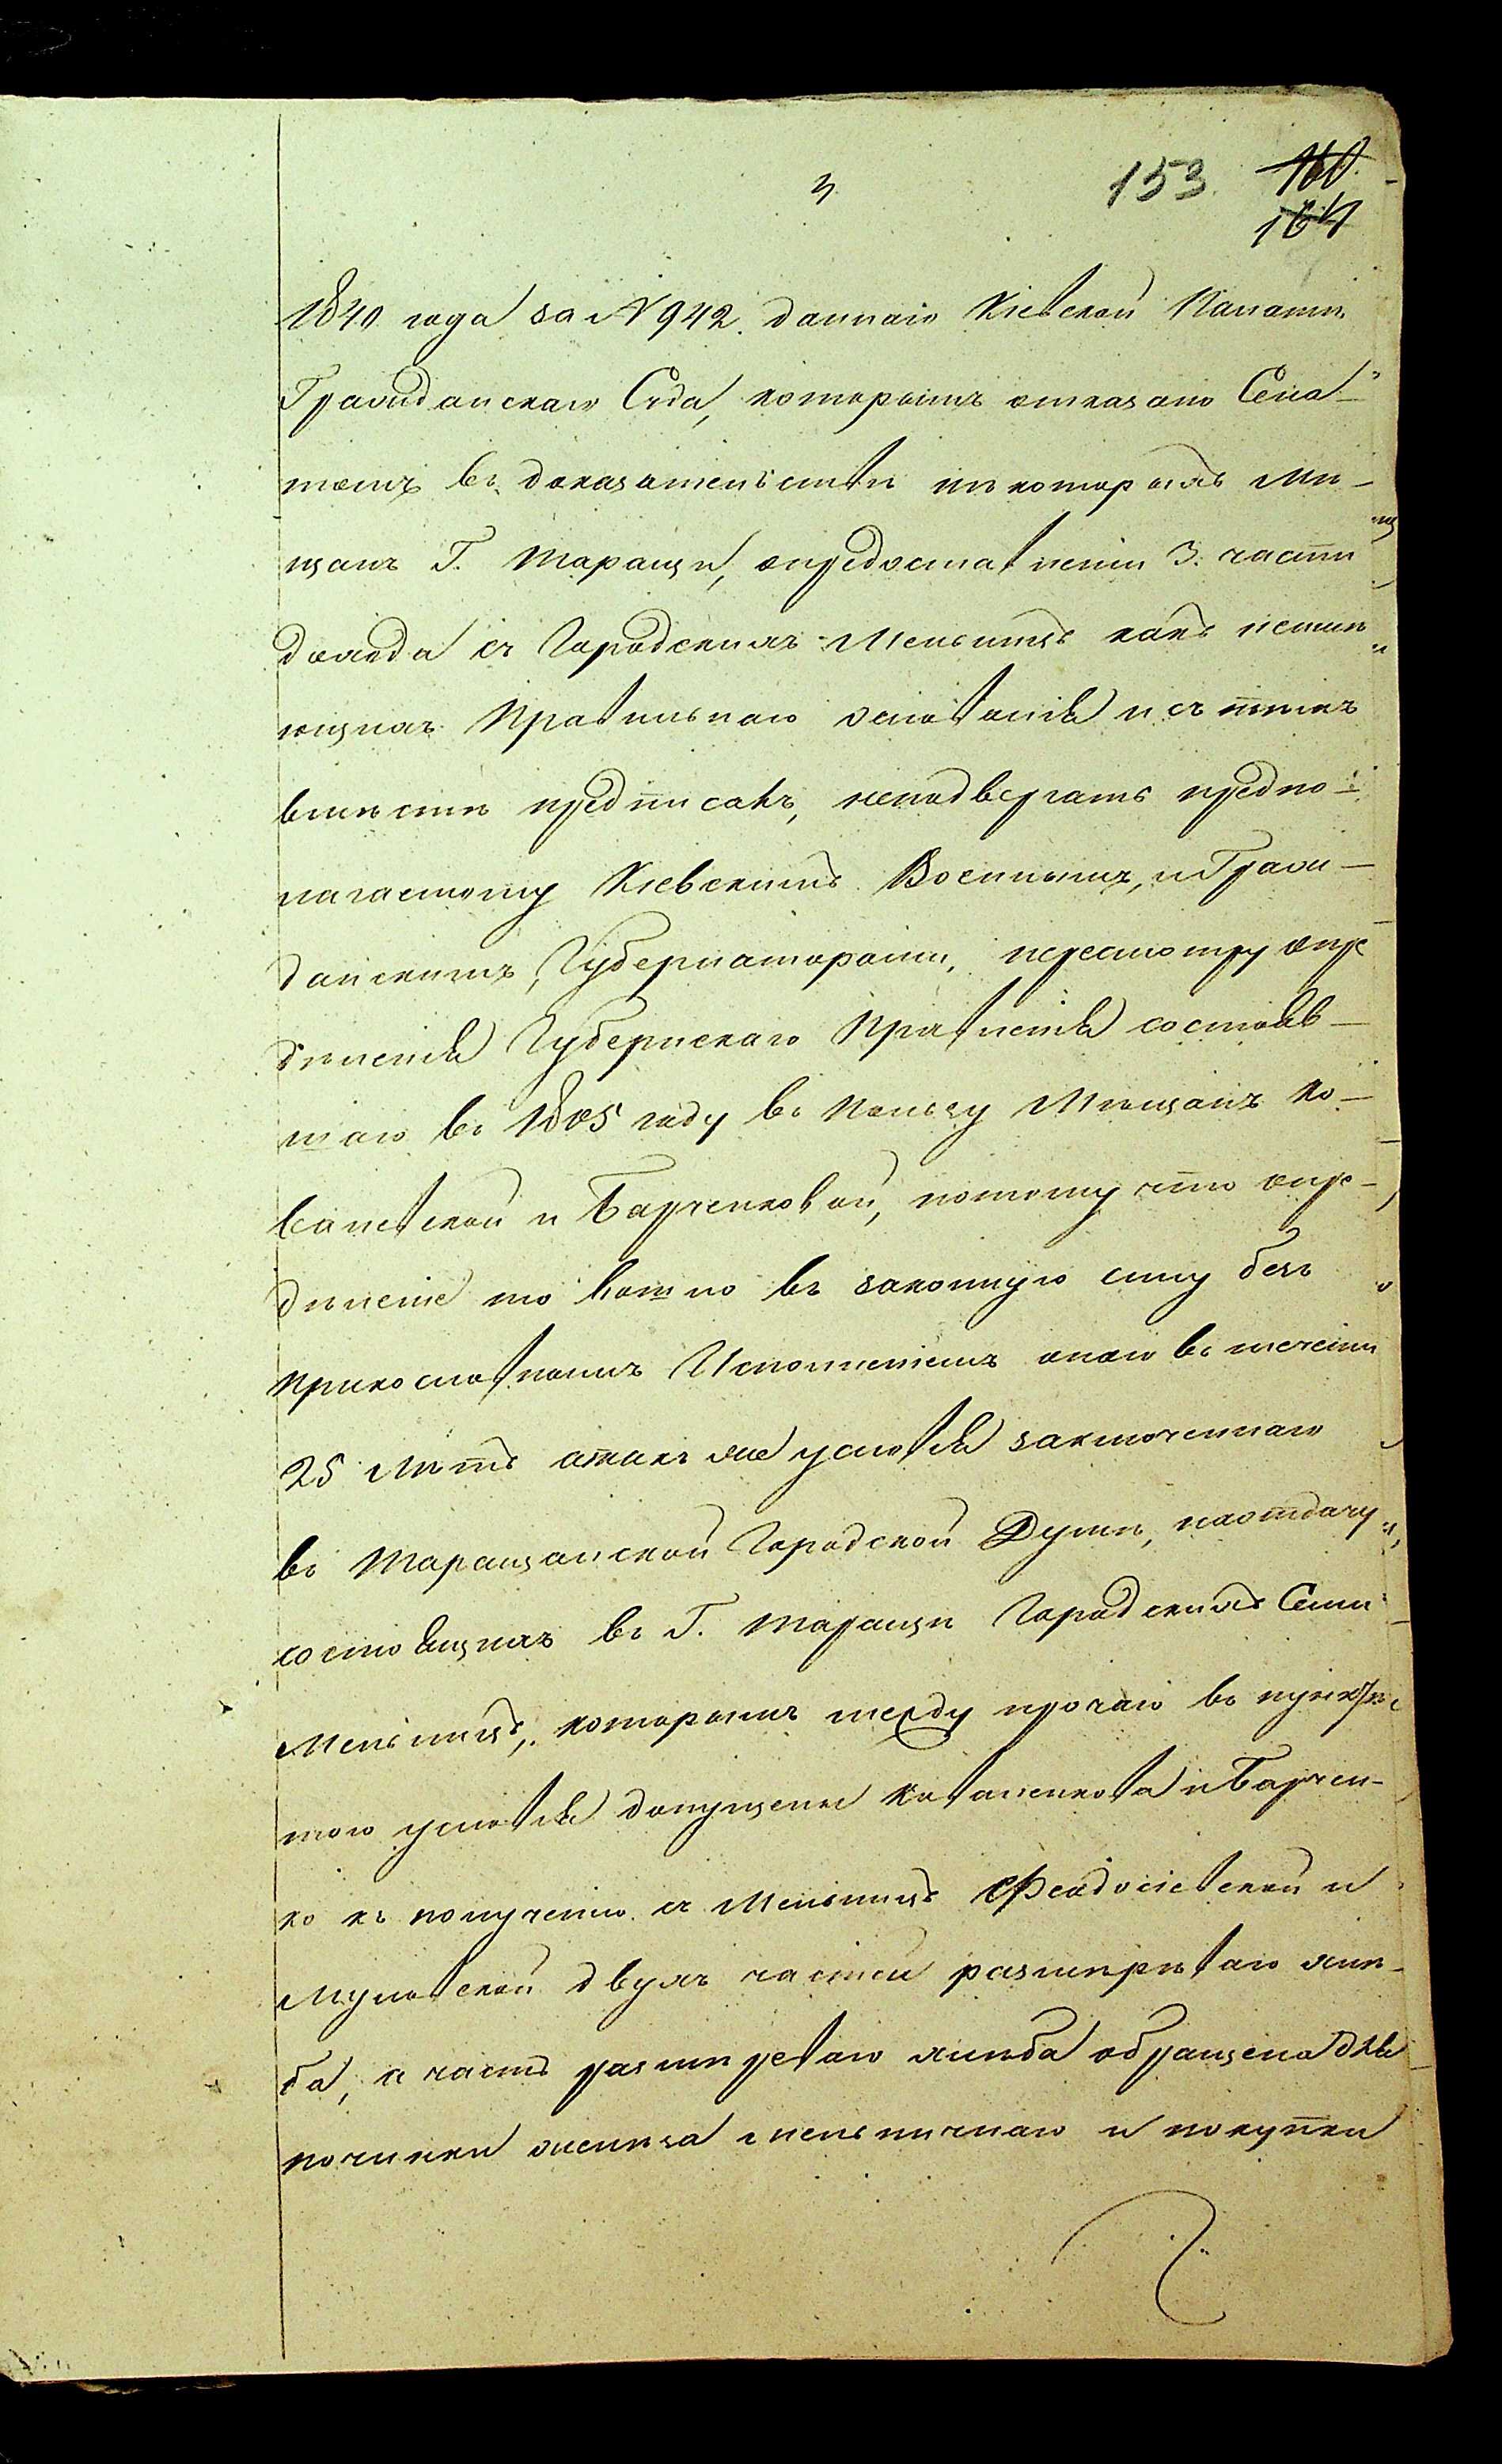 3
153. 160.
164
1840 года за №942. даннаго Кіевской Палатѣ
Гражданскаго Суда, которымъ отказано Сена-
томъ въ доказательствѣ нѣкоторыхъ Мѣ-
щанъ Г. Таращи, опредоставленіи 3. части
дохода съ Городскихъ Мельницъ какъ неимѣ
ющихъ Правильнаго основанія и съ тѣмъ
вмѣстѣ предписавъ, неподвергать предпо-
лагаемому Кіевскимъ Военнымъ, и Граж-
данскимъ, Губернаторами, пересмотру опре
дѣленія Губернскаго Правленія состояв-
шаго въ 1805 году въ пользу Мѣщанъ Ко-
валевской и Барченковой, потому что опре-
дѣленіе то вошло въ законную силу безъ
прикословнымъ Исполнетемъ онаго въ теченіи
25 лѣтъ атакъ же условія заключеннаго
въ Таращанской Городской Думѣ, наотдачу
состоящихъ въ Г. Таращѣ Городскихъ Семи
Мельницъ, которымъ между прочаго въ пунктѣ
того условія допущены Коваленкова и Барчен-
ко къ полученію съ Мельницъ Феодосіевской и
двухъ частей размѣрѣваго хлѣ-
ба, а часть размѣреваго хлѣба обращена для
починки жепѣза мельничнаго и покупки